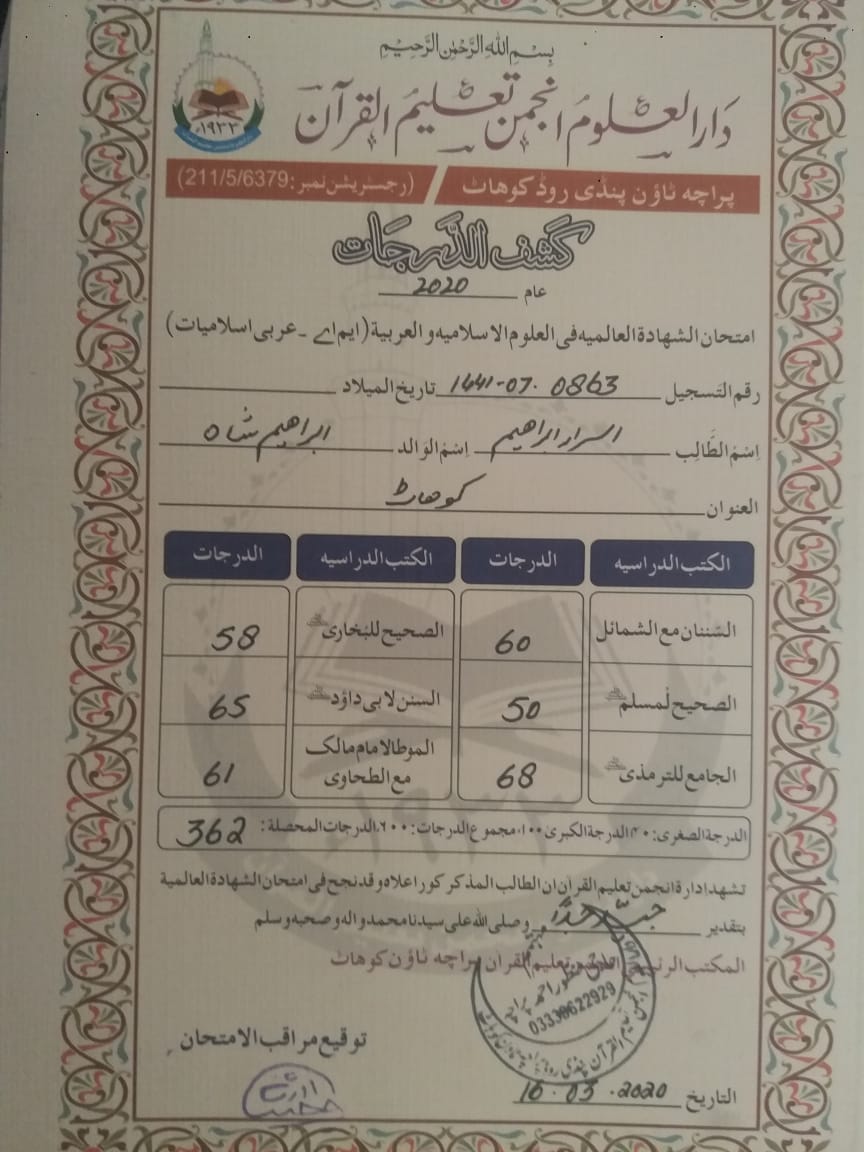 بِسْمِ اللهِ الرَّحْمٰنِ الرَّحِيْمِ
دَارالعلومُ انجمن تعليمُ القرآن
۱۹۳۳ء
پراچه ٹاؤن پنڈی روڈ کوهاٹ / (رجسٹریشن نمبر: 211/5/6379)
كَشف الدَّرجَات
عام 2020
امتحان الشهادة العالميه فى العلوم الاسلاميه و العربية (ايم اے ـ عربى اسلاميات)
رقم التَسجيل 1441-07. 0863 تاريخ الميلاد
اِسْمُ الطَّالِب اسرار ابراهيم اِسْمُ الوَالد ابراهيم شاه
العنوان كوهاٹ
الكتب الدراسيه الدرجات الكتب الدراسيه الدرجات
السُننان مع الشمائل 60 الصحيح للبُخارى 58
الصحيح لمُسلم 50 السنن لابى داؤد 65
الجامع للترمذى 68 الموطا لامام مالك مع الطحاوى 61
الدرجة الصغرى: ۴۰ الدرجة الكبرى ۱۰۰، مجموع الدرجات: ۶۰۰، الدرجات المحصلة: 362
تشهد ادارة انجمن تعليم القران ان الطالب المذكور اعلاه و قد نجح فى امتحان الشهادة العالمية
بتقدير جيد جدًا وصلى الله على سيدنا محمد و اله و صحبه وسلم
المكتب الرئيسى انجمن تعليم القران پراچه ٹاؤن كوهاٹ
03339622929
توقيع مراقب الامتحان
التاريخ 16.03.2020